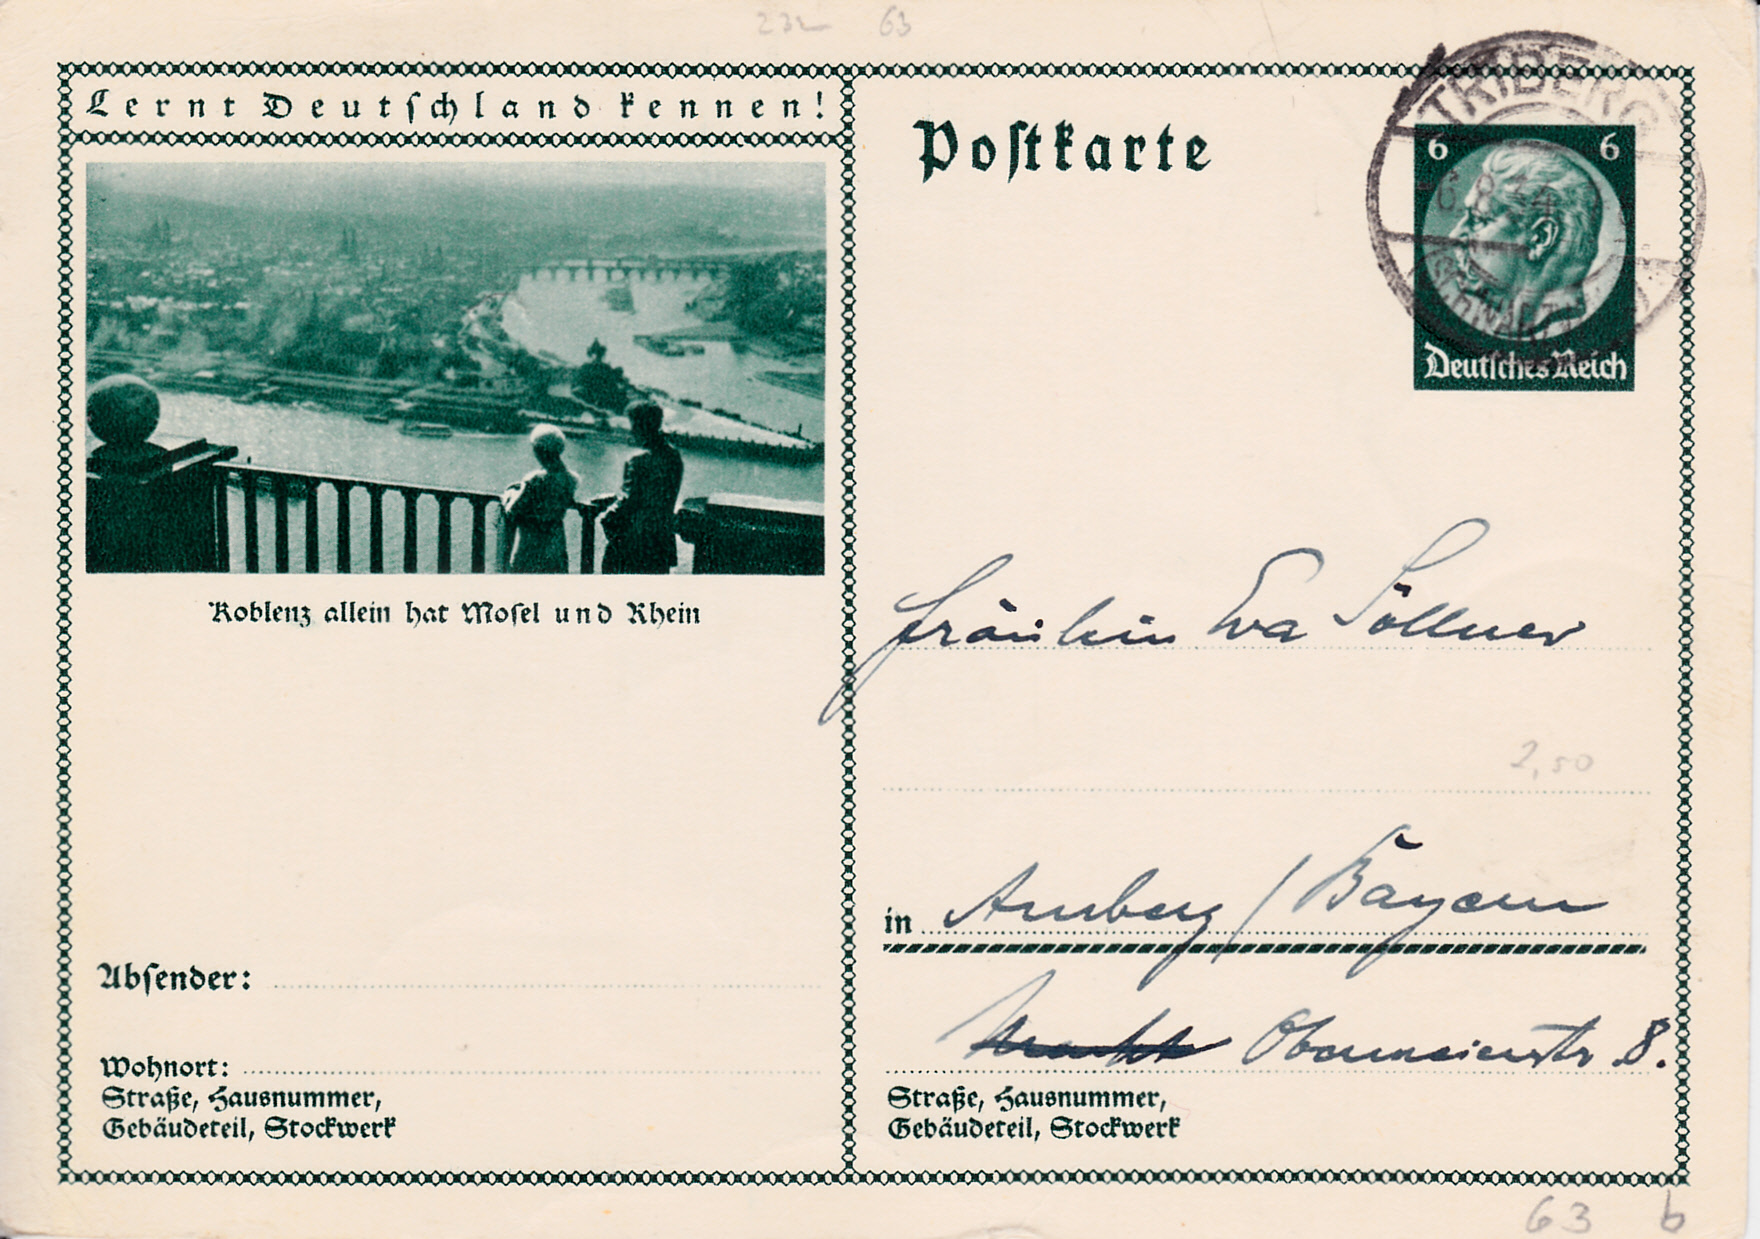 232 63
Lernt Deutschland kennen!
Koblenz allein hat Mosel und Rhein
Absender:
Wohnort:
Straße, Hausnummer,
Gebäudeteil, Stockwerk
Postkarte
TRIBERG
6 6
Deutsches Reich
Fräulein Eva Söllner
2,50
in Amberg / Bayern
Obermeierstr 8.
Straße, Hausnummer,
Gebäudeteil, Stockwerk
63 b